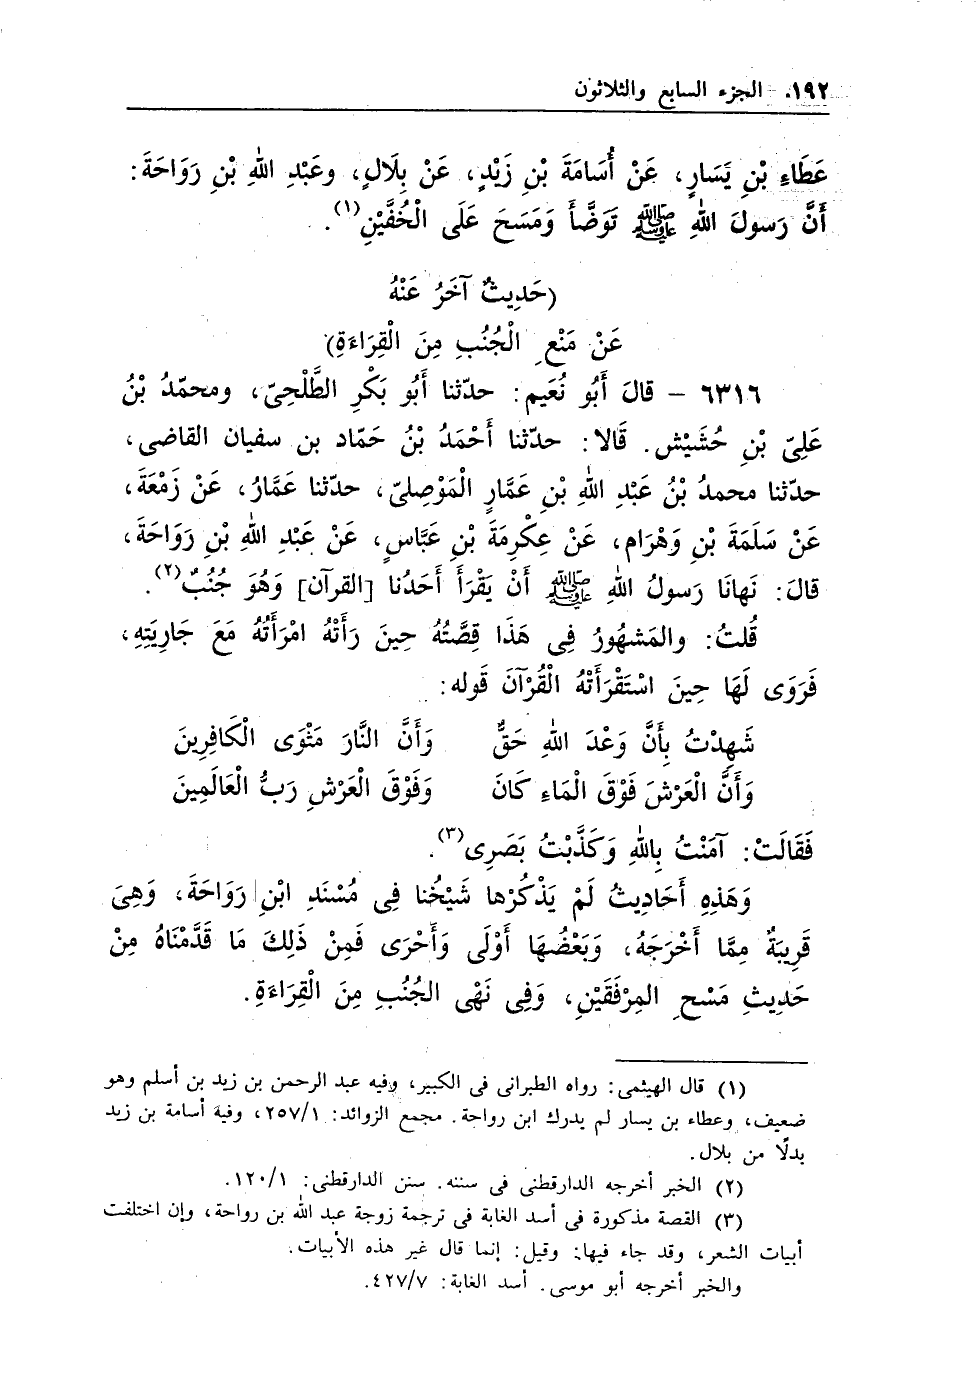 ١٩٢ - الجزء السابع والثلاثون
عَطَاءِ بْنِ يَسَارٍ، عَنْ أُسَامَةَ بْنِ زَيْدٍ، عَنْ بِلَالٍ، وعَبْدِ اللهِ بْنِ رَوَاحَةَ:
أَنَّ رَسولَ اللهِ ﷺ تَوَضَّأَ وَمَسَحَ عَلَى الْخُفَّيْنِ(١).
(حَدِيثٌ آخَرُ عَنْهُ
عَنْ مَنْعِ الْجُنُبِ مِنَ الْقِرَاءَةِ)
٦٣١٦ - قالَ أَبُو نُعَيم: حدّثنا أَبُو بَكْرِ الطَّلْحِىّ، ومحمّدُ بْنُ
عَلِىّ بْنِ حُشَيْش. قَالا: حدّثنا أَحْمَدُ بْنُ حَمَّاد بن سفيان القاضى،
حدّثنا محمدُ بْنُ عَبْدِ اللهِ بْنِ عَمَّارٍ الْمَوْصِلىّ، حدّثنا عَمَّارُ، عَنْ زَمْعَةَ،
عَنْ سَلَمَةَ بْنِ وَهْرَام، عَنْ عِكْرِمَةَ بْنِ عَبَّاسٍ، عَنْ عَبْدِ اللهِ بْنِ رَوَاحَةَ،
قالَ: نَهانَا رَسولُ اللهِ ﷺ أَنْ يَقْرَأَ أَحَدُنا [القرآن] وَهُوَ جُنُبٌ(٢).
قُلتُ: والمَشهُورُ فِى هَذَا قِصَّتُهُ حِينَ رَأَتْهُ امْرَأَتُهُ مَعَ جَارِيَتِهِ،
فَرَوَى لَهَا حِينَ اسْتَقْرَأَتْهُ الْقُرْآنَ قَوله:
شَهِدْتُ بِأَنَّ وَعْدَ اللهِ حَقٌّ وَأَنَّ النَّارَ مَثْوَى الْكَافِرِينَ
وَأَنَّ الْعَرْشَ فَوْقَ الْمَاءِ كَانَ وَفَوْقَ الْعَرْشِ رَبُّ الْعَالَمِينَ
فَقَالَتْ: آمَنْتُ بِاللهِ وَكَذَّبْتُ بَصَرِى(٣).
وَهَذِهِ أَحَادِيثُ لَمْ يَذْكُرْها شَيْخُنا فِى مُسْنَدِ ابْنِ رَوَاحَةَ، وَهِىَ
قَرِيبَةٌ مِمَّا أَخْرَجَهُ، وَبَعْضُهَا أَوْلَى وَأَحْرَى فَمِنْ ذَلِكَ مَا قَدَّمْنَاهُ مِنْ
حَدِيثِ مَسْحِ المِرْفَقَيْنِ، وَفِى نَهْى الجُنُبِ مِنَ الْقِرَاءَةِ.
(١) قال الهيثمى: رواه الطبرانى فى الكبير، وفيه عبد الرحمن بن زيد بن أسلم وهو
ضعيف، وعطاء بن يسار لم يدرك ابن رواحة. مجمع الزوائد: ٢٥٧/١، وفية أسامة بن زيد
بدلًا من بلال.
(٢) الخبر أخرجه الدارقطنى فى سننه. سنن الدارقطنى: ١٢٠/١.
(٣) القصة مذكورة فى أسد الغابة فى ترجمة زوجة عبد الله بن رواحة، وإن اختلفت
أبيات الشعر، وقد جاء فيها: وقيل: إنما قال غير هذه الأبيات.
والخبر أخرجه أبو موسى. أسد الغابة: ٤٢٧/٧.